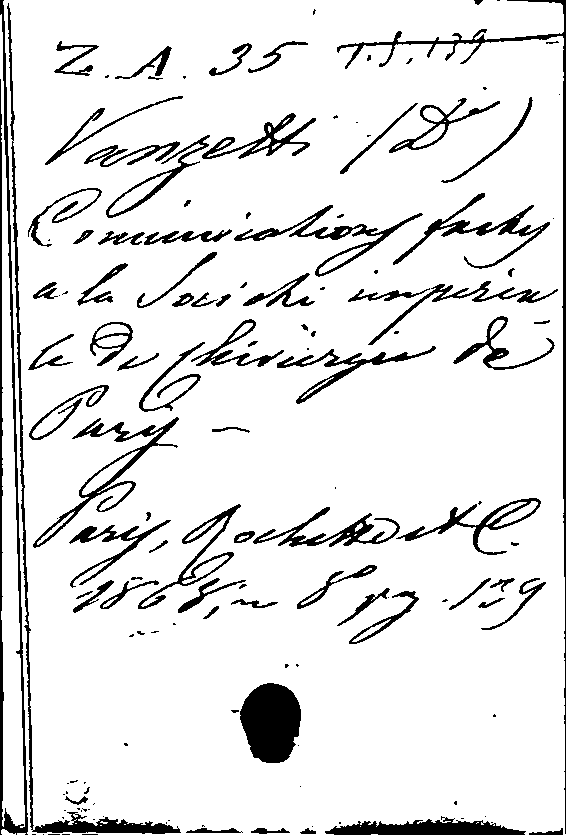 Z. A. 35 T.S.139
Vanzetti (Dr)
Comunications faites
a la Societé imperia
le De Chirurgie de
Paris —
Paris, Rochette et C.
1868, in 8° pag. 19